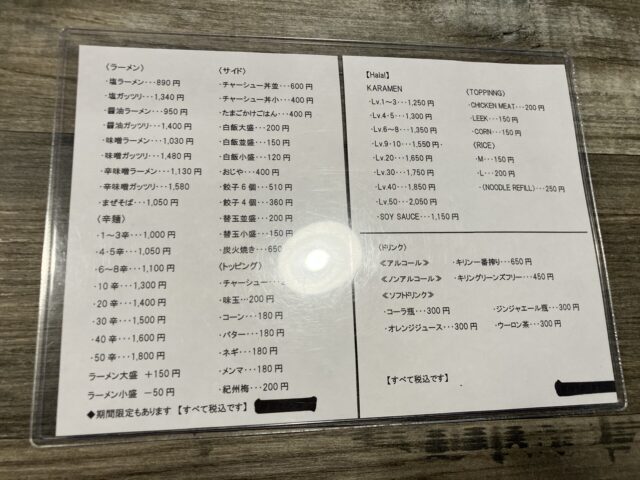 〈ラーメン〉
・塩ラーメン・・・890円
・塩ガッツリ・・・1,340円
・醤油ラーメン・・・950円
・醤油ガッツリ・・・1,400円
・味噌ラーメン・・・1,030円
・味噌ガッツリ・・・1,480円
・辛味噌ラーメン・・・1,130円
・辛味噌ガッツリ・・・1,580
・まぜそば・・・1,050円
〈辛麺〉
・1～3辛・・・1,000円
・4・5辛・・・1,050円
・6～8辛・・・1,100円
・10辛・・・1,300円
・20辛・・・1,400円
・30辛・・・1,500円
・40辛・・・1,600円
・50辛・・・1,800円
ラーメン大盛 ＋150円
ラーメン小盛 －50円
◆期間限定もあります【すべて税込です】
〈サイド〉
・チャーシュー丼並・・・600円
・チャーシュー丼小・・・400円
・たまごかけごはん・・・400円
・白飯大盛・・・200円
・白飯並盛・・・150円
・白飯小盛・・・120円
・おじや・・・400円
・餃子6個・・・510円
・餃子4個・・・360円
・替玉並盛・・・200円
・替玉小盛・・・150円
・炭火焼き・・・650
〈トッピング〉
・チャーシュー・・
・味玉・・・200円
・コーン・・・180円
・バター・・・180円
・ネギ・・・180円
・メンマ・・・180円
・紀州梅・・・200円
【Halal】
KARAMEN
・Lv.1～3・・・1,250円
・Lv.4・5・・・1,300円
・Lv.6～8・・・1,350円
・Lv.9・10・・・1,550円・
・Lv.20・・・1,650円
・Lv.30・・・1,750円
・Lv.40・・・1,850円
・Lv.50・・・2,050円
・SOY SAUCE・・・1,150円
〈TOPPINNG〉
・CHICKEN MEAT・・・200円
・LEEK・・・150円
・CORN・・・150円
〈RICE〉
・M・・・150円
・L・・・200円
・〈NOODLE REFILL〉・・・250円
〈ドリンク〉
≪アルコール≫ ・キリン一番搾り・・・650円
≪ノンアルコール≫ ・キリングリーンズフリー・・・450円
≪ソフトドリンク≫
・コーラ瓶・・・300円 ・ジンジャエール瓶・・・300円
・オレンジジュース・・・300円 ・ウーロン茶・・・300円
【すべて税込です】